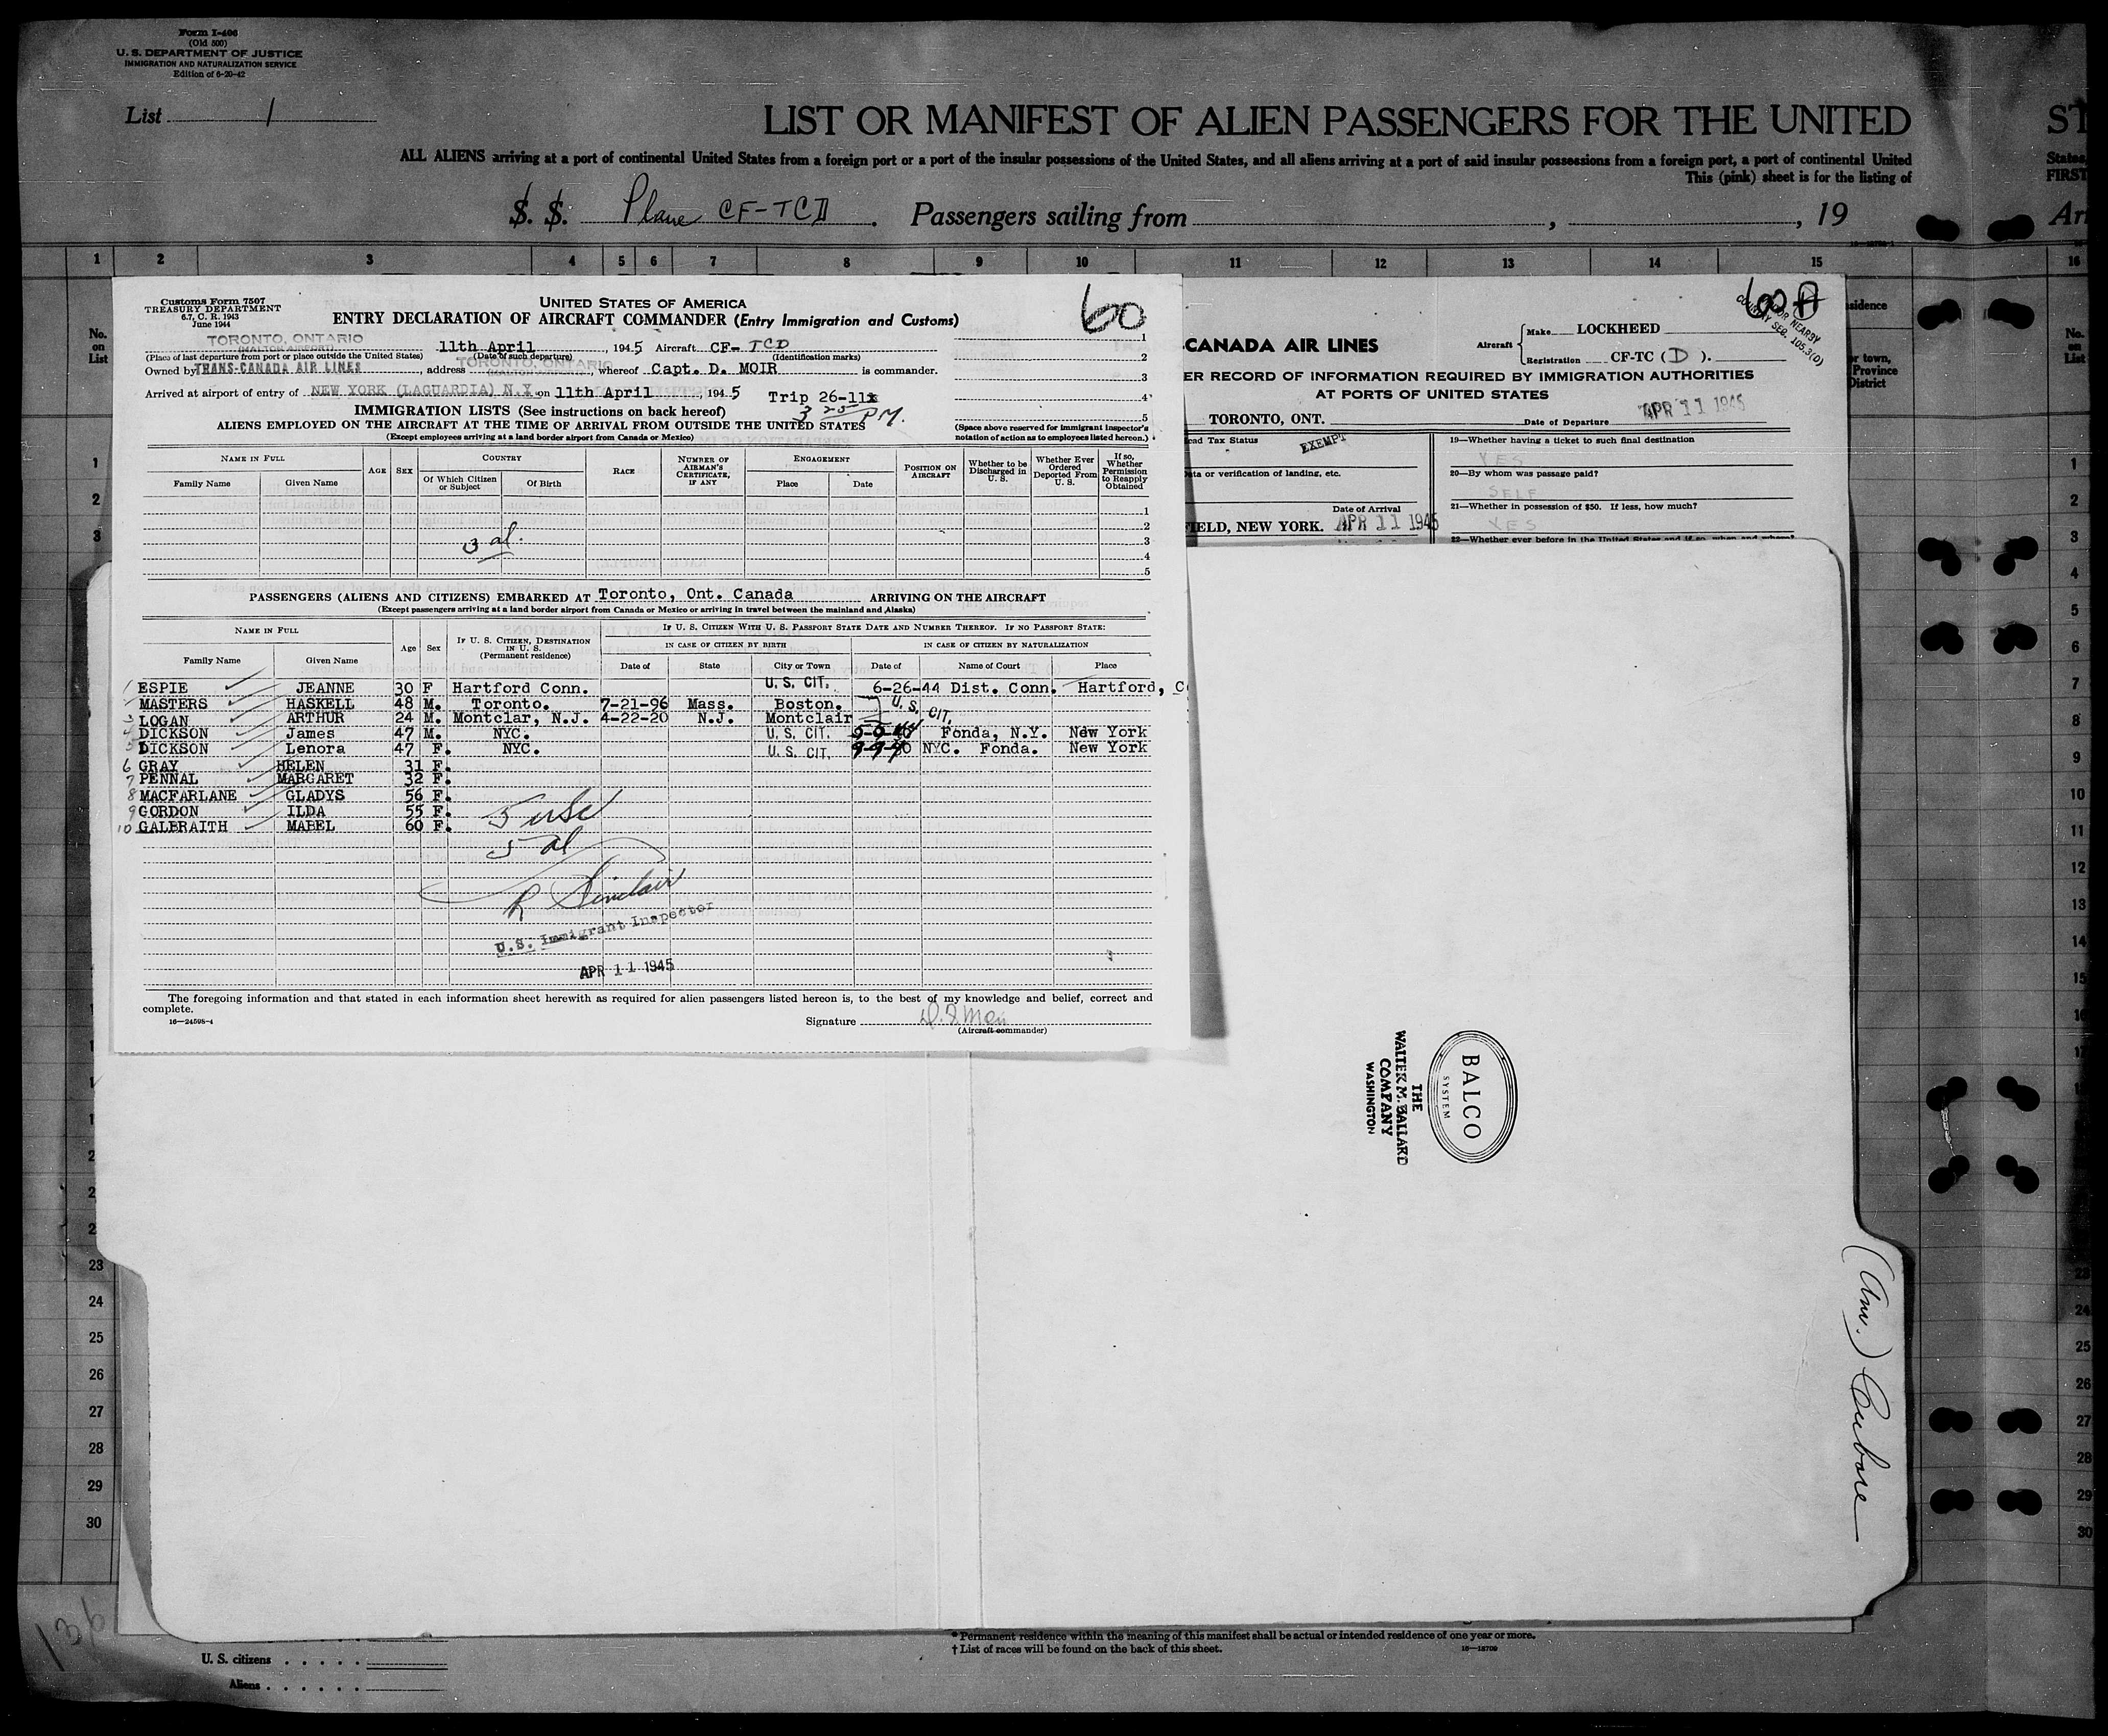 Form I-406
(Old 500)
U. S. DEPARTMENT OF JUSTICE
IMMIGRATION AND NATURALIZATION SERVICE
Edition of 6-20-42
List 1
LIST OR MANIFEST OF ALIEN PASSENGERS FOR THE UNITED ST
ALL ALIENS arriving at a port of continental United States from a foreign port or a port of the insular possessions of the United States, and all aliens arriving at a port of said insular possessions from a foreign port, a port of continental United States,
This (pink) sheet is for the listing of FIRST
S. S. Plane CF-TCD. Passengers sailing from , , 19 Arr
1 2 3 4 5 6 7 8 9 10 11 12 13 14 15 16
No. on List
Customs Form 7507
TREASURY DEPARTMENT
6.7, C. R. 1943
June 1944
UNITED STATES OF AMERICA
60
ENTRY DECLARATION OF AIRCRAFT COMMANDER (Entry Immigration and Customs)
TORONTO, ONTARIO
(MALTON AIRPORT)
11th April, 1945 Aircraft CF-TCD
(Place of last departure from port or place outside the United States) (Date of such departure) (Identification marks)
Owned by TRANS-CANADA AIR LINES, address TORONTO, ONTARIO, whereof Capt. D. MOIR is commander.
Arrived at airport of entry of NEW YORK (LAGUARDIA) N.Y. on 11th April, 1945 Trip 26-11
3 25 P.M.
IMMIGRATION LISTS (See instructions on back hereof)
ALIENS EMPLOYED ON THE AIRCRAFT AT THE TIME OF ARRIVAL FROM OUTSIDE THE UNITED STATES
(Except employees arriving at a land border airport from Canada or Mexico)
1
2
3
4
5
(Space above reserved for immigrant inspector's notation of action as to employees listed hereon.)
NAME IN FULL
Family Name Given Name
AGE SEX
COUNTRY
Of Which Citizen or Subject Of Birth
RACE
NUMBER OF AIRMAN'S CERTIFICATE, IF ANY
ENGAGEMENT
Place Date
POSITION ON AIRCRAFT
Whether to be Discharged in U. S.
Whether Ever Ordered Deported From U. S.
If so, Whether Permission to Reapply Obtained
1
2
3
4
5
3 al.
PASSENGERS (ALIENS AND CITIZENS) EMBARKED AT Toronto, Ont. Canada ARRIVING ON THE AIRCRAFT
(Except passengers arriving at a land border airport from Canada or Mexico or arriving in travel between the mainland and Alaska)
NAME IN FULL
Family Name Given Name
Age Sex
IF U. S. CITIZEN, DESTINATION IN U. S.
(Permanent residence)
IF U. S. CITIZEN WITH U. S. PASSPORT STATE DATE AND NUMBER THEREOF. IF NO PASSPORT STATE:
IN CASE OF CITIZEN BY BIRTH IN CASE OF CITIZEN BY NATURALIZATION
Date of State City or Town Date of Name of Court Place
1 ESPIE JEANNE 30 F Hartford Conn. U. S. CIT. 6-26-44 Dist. Conn. Hartford, C
MASTERS HASKELL 48 M. Toronto. 7-21-96 Mass. Boston. U. S. CIT.
3 LOGAN ARTHUR 24 M. Montclar, N.J. 4-22-20 N.J. Montclair
DICKSON James 47 M. NYC. U. S. CIT. Fonda, N.Y. New York
5 DICKSON Lenora 47 F. NYC. U. S. CIT. NYC. Fonda. New York
6 GRAY HELEN 31 F.
7 PENNAL MARGARET 32 F.
8 MACFARLANE GLADYS 56 F.
9 GORDON ILDA 55 F.
10 GALBRAITH MABEL 60 F.
5 USC
5 al
R Sinclair
U.S. Immigrant Inspector
APR 11 1945
The foregoing information and that stated in each information sheet herewith as required for alien passengers listed hereon is, to the best of my knowledge and belief, correct and complete.
16—24598-4
Signature
(Aircraft commander)
60 A
CANADA AIR LINES
Aircraft Make LOCKHEED
Registration CF-TC ( D ).
ER RECORD OF INFORMATION REQUIRED BY IMMIGRATION AUTHORITIES
AT PORTS OF UNITED STATES
TORONTO, ONT. Date of Departure APR 11 1945
ead Tax Status EXEMPT
ata or verification of landing, etc.
Date of Arrival
FIELD, NEW YORK. APR 11 1945
19—Whether having a ticket to such final destination
YES
20—By whom was passage paid?
SELF
21—Whether in possession of $50. If less, how much?
YES
22—Whether ever before in the United States and if so, when and where?
sidence
r town,
Province
District
No. on List
BALCO
SYSTEM
THE
WALTER M. BALLARD
COMPANY
WASHINGTON
1
2
3
4
5
6
7
8
9
10
11
12
13
14
15
16
23
24
25
26
27
28
29
30
136
* Permanent residence within the meaning of this manifest shall be actual or intended residence of one year or more.
† List of races will be found on the back of this sheet.
U. S. citizens
Aliens